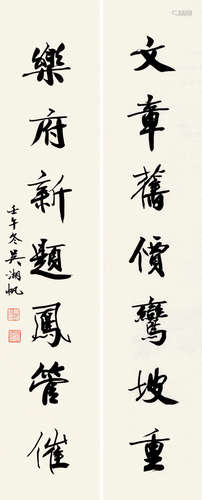 文章舊價鸞坡重
樂府新題鳳管催
壬午冬吳湖帆